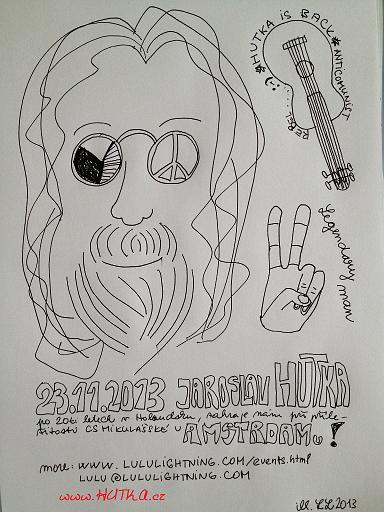 *HUTKA iS BACK*
ANTICOMUNIST
REBEL
Legendary man
23.11.2013 JAROSLAV HUTKA
po 20ti letech v Holandsku, zahraje nám při příle-
žitosti CS MIKULÁŠSKÉ v AMSTRDAMu!
more: www.LULULIGHTNING.COM/events.html
LULU@LULULIGHTNING.COM
www.HUTKA.cz
ill. LL 2013